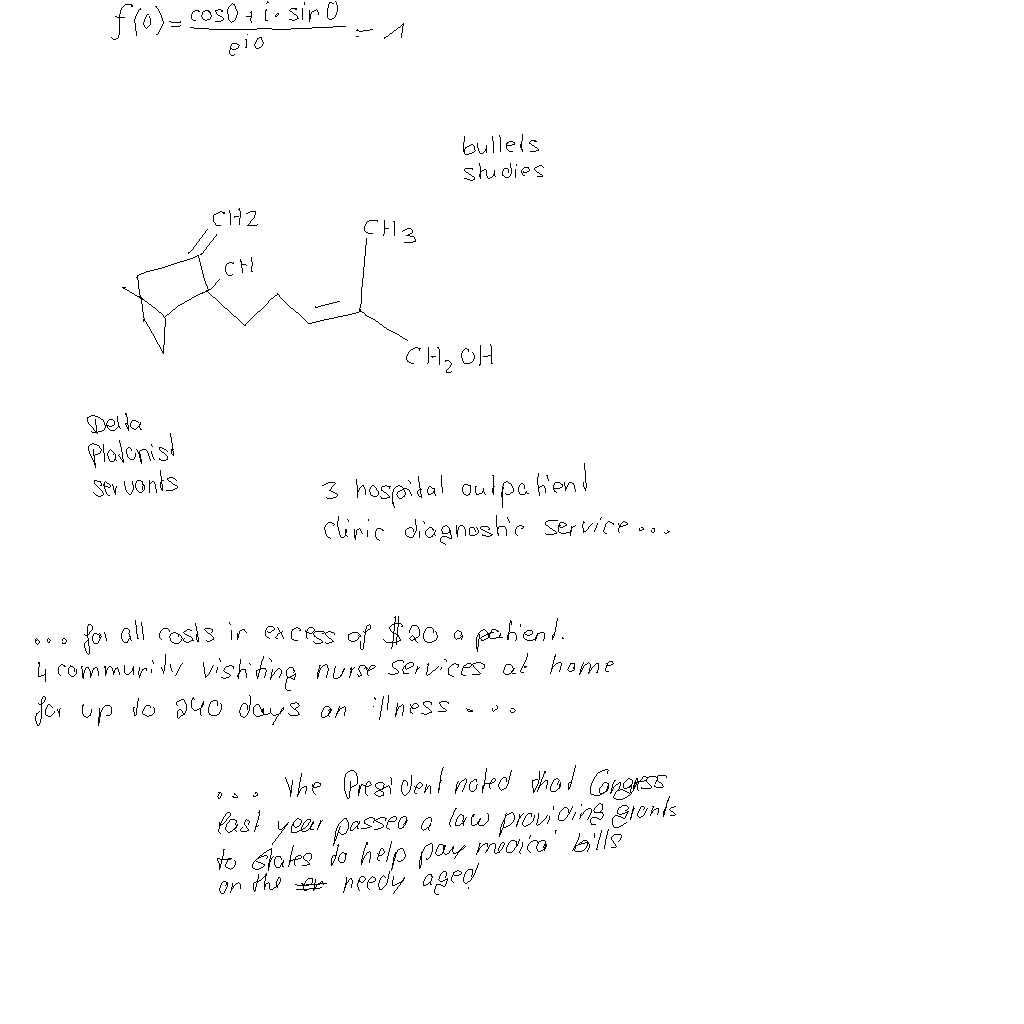 f(θ) = (cosθ + i · sinθ) / e^(iθ) = 1
bullets
studies
CH2
CH3
CH
CH₂OH
Delta
Platonist
servants
3 hospital outpatient
clinic diagnostic service...
... for all costs in excess of $20 a patient.
4 community vishiting nurse services at home
for up to 240 days an illness ...
... the President noted that Congress
last year passed a law providing grants
to states to help pay medical bills
on the needy aged